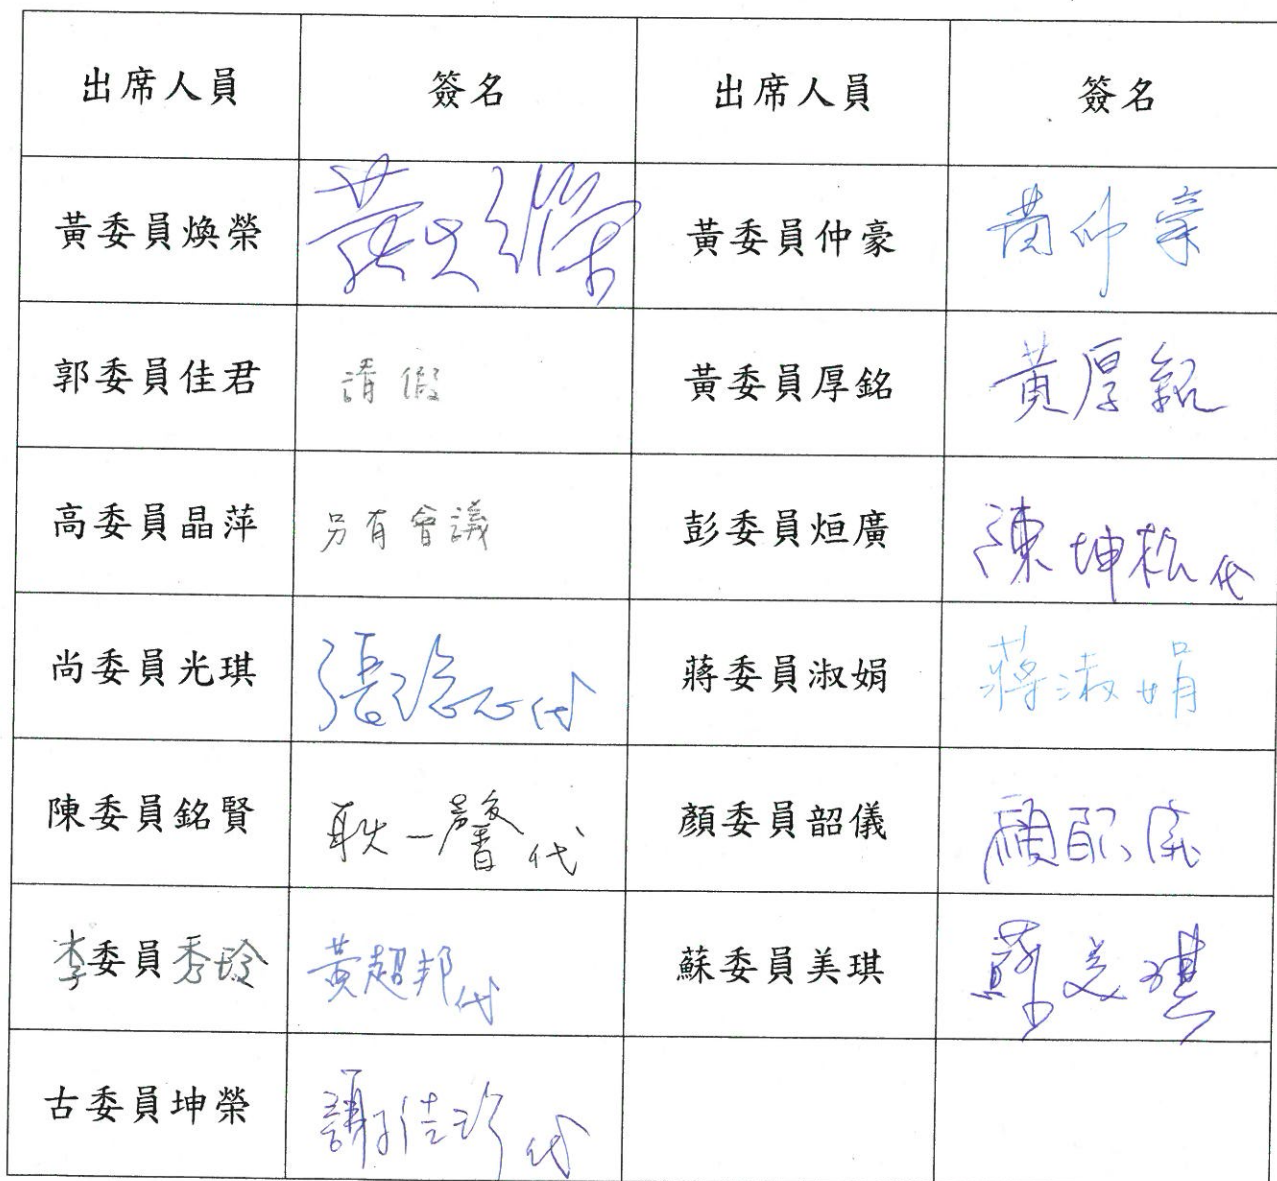 出席人員 簽名 出席人員 簽名
黃委員煥榮 黃煥榮 黃委員仲豪 黃仲豪
郭委員佳君 請假 黃委員厚銘 黃厚銘
高委員晶萍 另有會議 彭委員烜廣 陳坤松代
尚委員光琪 張 代 蔣委員淑娟 蔣淑娟
陳委員銘賢 耿一馨代 顏委員韶儀 顏韶儀
李委員秀玲 黃超邦代 蘇委員美琪 蘇美琪
古委員坤榮 謝佳珍代